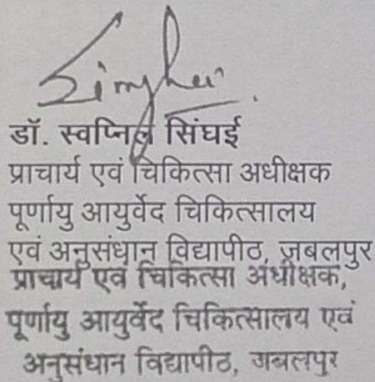 Singhai
डॉ. स्वप्निल सिंघई
प्राचार्य एवं चिकित्सा अधीक्षक
पूर्णायु आयुर्वेद चिकित्सालय
एवं अनुसंधान विद्यापीठ, जबलपुर
प्राचार्य एवं चिकित्सा अधीक्षक,
पूर्णायु आयुर्वेद चिकित्सालय एवं
अनुसंधान विद्यापीठ, जबलपुर